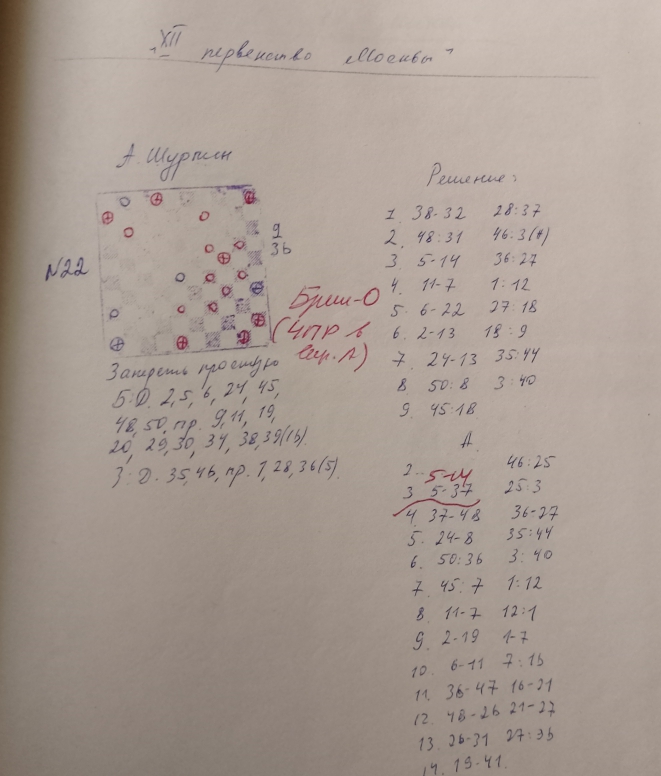 "XII первенство Москвы"
А. Шурпин
N22
9
36
Бриш-О
(4пр в
вар. А)
Запереть простую
Б: Д. 2, 5, 6, 24, 45,
48, 50, пр. 9, 11, 19,
20, 29, 30, 34, 38, 39(16).
З: Д. 35, 46, пр. 1, 28, 36(5).
Решение:
1. 38-32 28:37
2. 48:31 46:3(А)
3. 5-14 36:27
4. 11-7 1:12
5. 6-22 27:18
6. 2-13 18:9
7. 24-13 35:44
8. 50:8 3:40
9. 45:18
А.
2. 46:25
5-14
3. 5-37 25:3
4. 37-48 36-27
5. 24-8 35:44
6. 50:36 3:40
7. 45:7 1:12
8. 11-7 12:1
9. 2-19 1-7
10. 6-11 7:16
11. 36-47 16-21
12. 48-26 21-27
13. 26-31 27:36
14. 19-41.